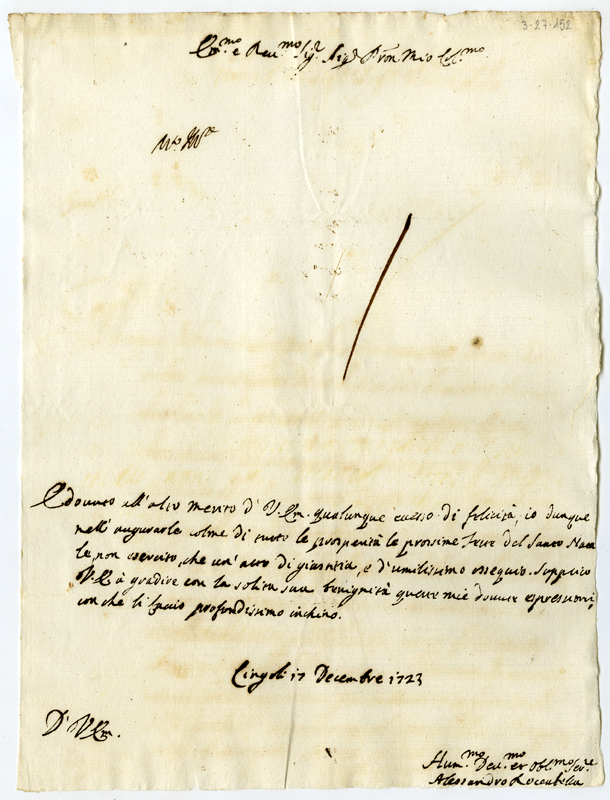 3-27-152
Em.mo e Reu.mo Sig.r Sig.r Pron Mio Col.mo
È douuto all'alto merito d' V. Em. qualunque euento di felicità, io dunque
nell' augurarle colme di tutte le prosperità le prossime feste del Santo Nata
le, non esercito, che un' atto di giustitia, e d'umilissimo ossequio. Supplico
V. E. à gradire con la solita sua benignità queste mie douute espressioni,
con che li faccio profondissimo inchino.
Cingoli 17 Decembre 1723
D' V. Em.
Hum.mo Deu.mo et Obl.mo Ser.re
Alessandro